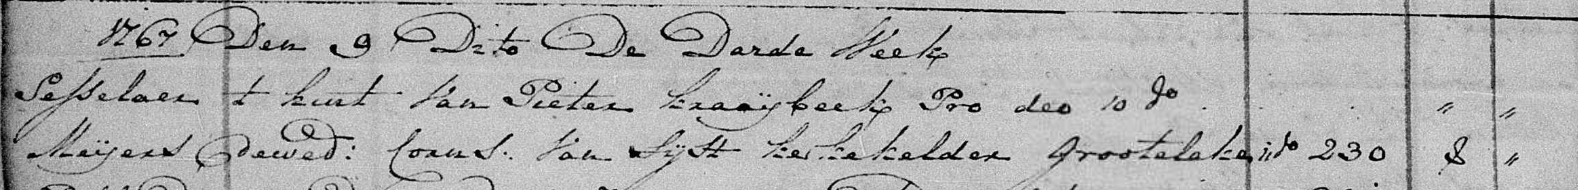 1767 Den 9 Dito De Darde Week
Sesselaer t kint Van Pieter kraaÿbeek Pro deo 10 do " "
Meÿers dewed: Corns. Van Sÿst kerkekelder Grootelake 11 do 230 8 "